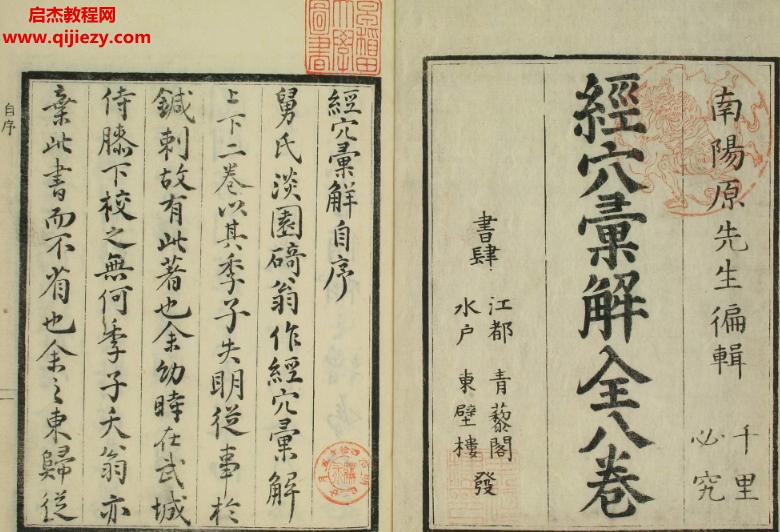 启杰教程网
www.qijiezy.com
南陽原先生編輯
千里必究
經穴彙解全八卷
書肆
江都 青藜閣
水户 東壁樓
發
經穴彙解自序
舅氏淡園𥔎翁作經穴彙解
上下二卷以其季子失明從事於
鍼刺故有此著也余幼時在武城
侍膝下校之無何季子夭翁亦
棄此書而不省也余之東歸從
自序